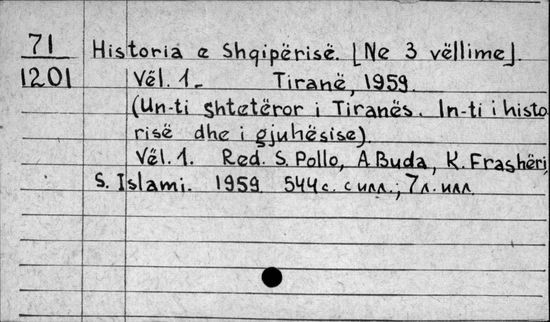 71
1201
Historia e Shqipërisë. [Ne 3 vëllime].
Vël. 1- Tiranë, 1959.
(Un-ti Shtetëror i Tiranës. In-ti i histo
risë dhe i gjuhësise).
Vël. 1. Red. S. Pollo, A Buda, K. Frashëri,
S. Islami. 1959. 544 с. с илл.; 7 л. илл.